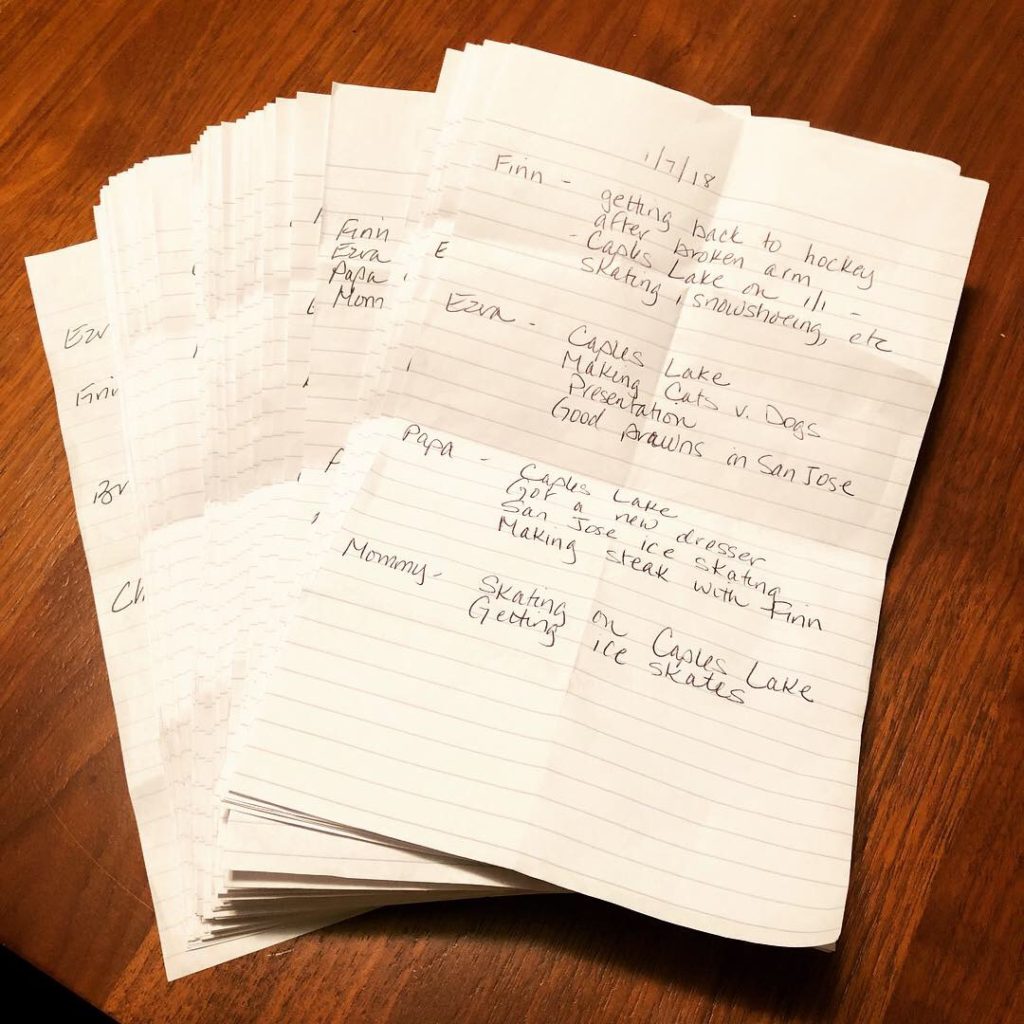 1/7/18
Finn - getting back to hockey
after broken arm
- Caples Lake on 1/1 -
skating, snowshoeing, etc
Ezra - Caples Lake
Making Cats v. Dogs
Presentation
Good prawns in San Jose
Papa - Caples Lake
Got a new dresser
San Jose ice skating
Making steak with Finn
Mommy - Skating on Caples Lake
Getting ice skates
E
Finn
Ezra
Papa
Mom
Ezr
Fin
Br
Ch